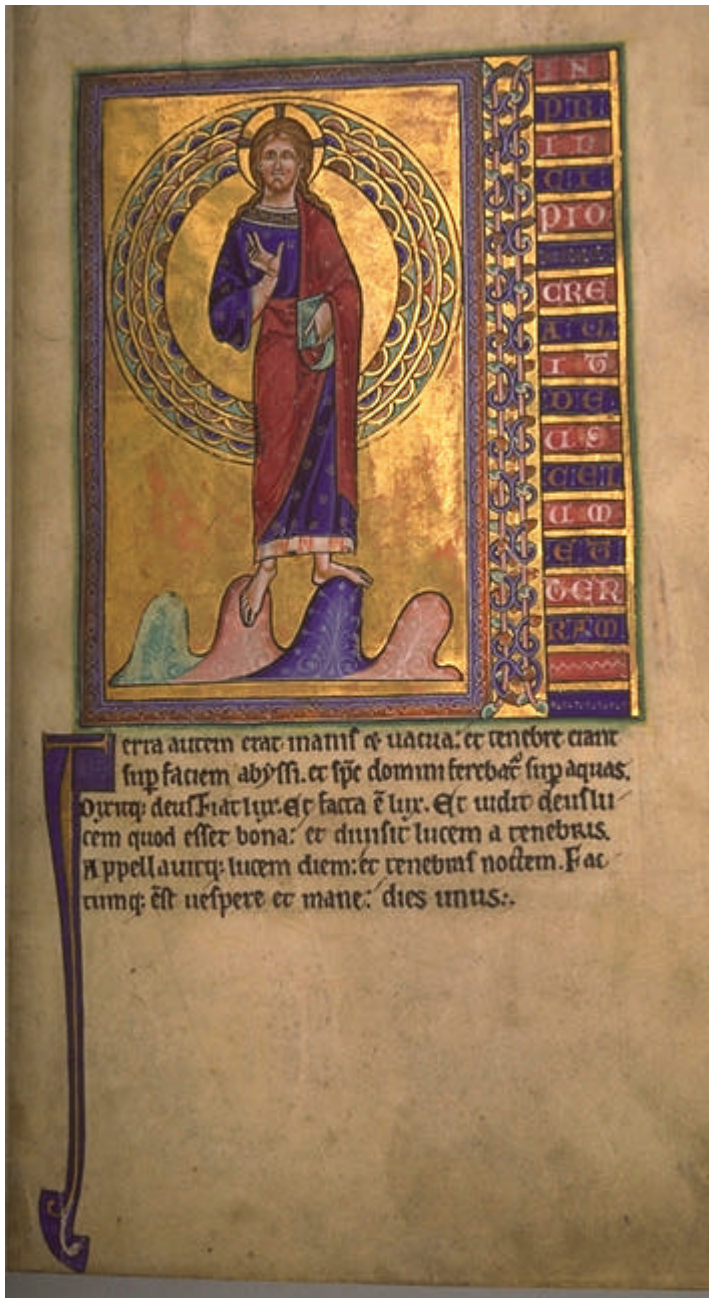 IN
PRI
IN
CI
PIO
CRE
AU
IT
DE
US
CEL
UM
ET
TER
RAM
Terra autem erat inanis & uacua: et tenebre erant
sup faciem abyssi. et spc domini ferebat sup aquas.
Dixitq: deus Fiat lux. Et facta e lux. Et uidit deus lu
cem quod esset bona: et diuisit lucem a tenebris.
Appellauitq: lucem diem: et tenebras noctem. Fac
tumq: est uespere et mane: dies unus:.